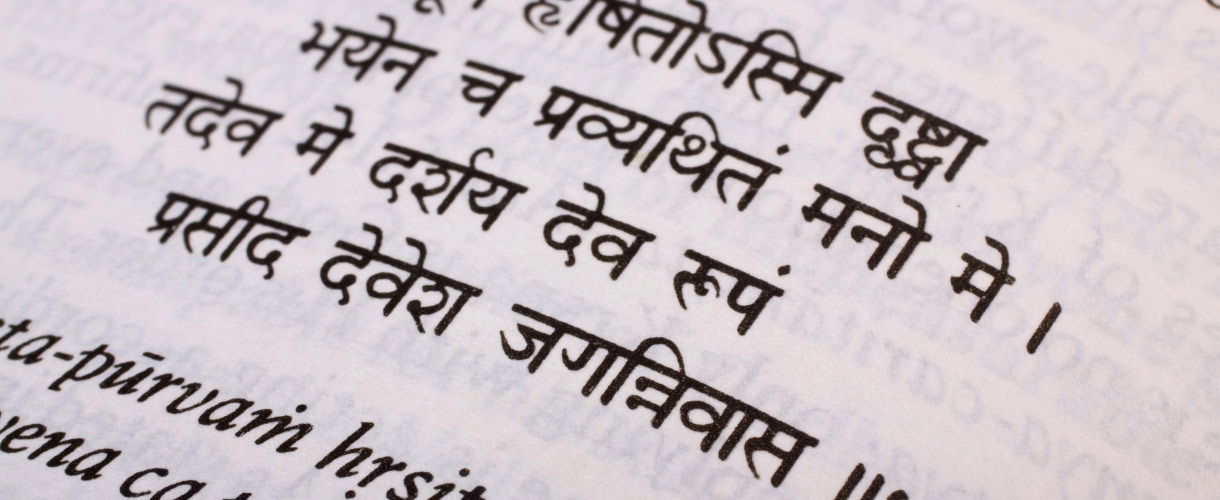 हृषितोऽस्मि दृष्ट्वा
भयेन च प्रव्यथितं मनो मे ।
तदेव मे दर्शय देव रूपं
प्रसीद देवेश जगन्निवास ॥
ta-pūrvaṁ hṛṣit
ena ca